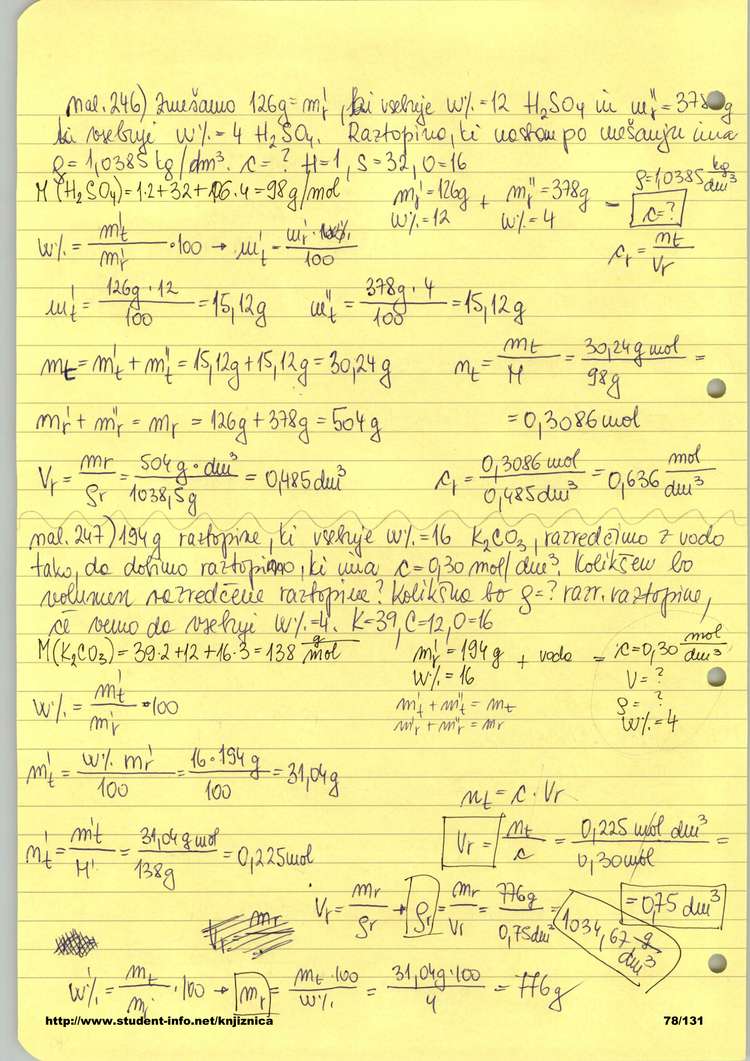 nal. 246) Zmešamo 126g = m'r, ki vsebuje W% = 12 H2SO4 in m''r = 378g
ki vsebuje W% = 4 H2SO4. Raztopina, ki nastane po mešanju ima
ρ = 1,0385 kg/dm³. c = ? H=1, S=32, O=16
M(H2SO4) = 1·2+32+16·4 = 98g/mol
m'r = 126g + m''r = 378g = ρ = 1,0385 kg/dm³
W% = 12 W% = 4 c = ?
W% = m't / m'r · 100 → m't = m'r · W% / 100 cr = nt / Vr
m't = 126g · 12 / 100 = 15,12g m''t = 378g · 4 / 100 = 15,12g
mt = m't + m''t = 15,12g + 15,12g = 30,24g nt = mt / M = 30,24g mol / 98g =
m'r + m''r = mr = 126g + 378g = 504g = 0,3086 mol
Vr = mr / ρr = 504g · dm³ / 1038,5g = 0,485 dm³ cr = 0,3086 mol / 0,485 dm³ = 0,636 mol / dm³
nal. 247) 194g raztopine, ki vsebuje W% = 16 K2CO3, razredčimo z vodo
tako, da dobimo raztopino, ki ima c = 0,30 mol/dm³. Kolikšen bo
volumen razredčene raztopine? Kolikšna bo ρ = ? razr. raztopine,
če vemo da vsebuje W% = 4. K=39, C=12, O=16
M(K2CO3) = 39·2+12+16·3 = 138 g/mol
m'r = 194g + voda = c = 0,30 mol/dm³
W% = 16 V = ?
W% = m't / m'r · 100 m't + m''t = mt ρ = ?
m'r + m''r = mr W% = 4
m't = W% m'r / 100 = 16 · 194g / 100 = 31,04g
nt = c · Vr
n't = m't / M' = 31,04g mol / 138g = 0,225 mol Vr = nt / c = 0,225 mol dm³ / 0,30 mol =
= 0,75 dm³
Vr = mr / ρr → ρr = mr / Vr = 776g / 0,75 dm³ = 1034,67 g / dm³
W% = mt / mr · 100 → mr = mt · 100 / W% = 31,04g · 100 / 4 = 776g
http://www.student-info.net/knjiznica 78/131